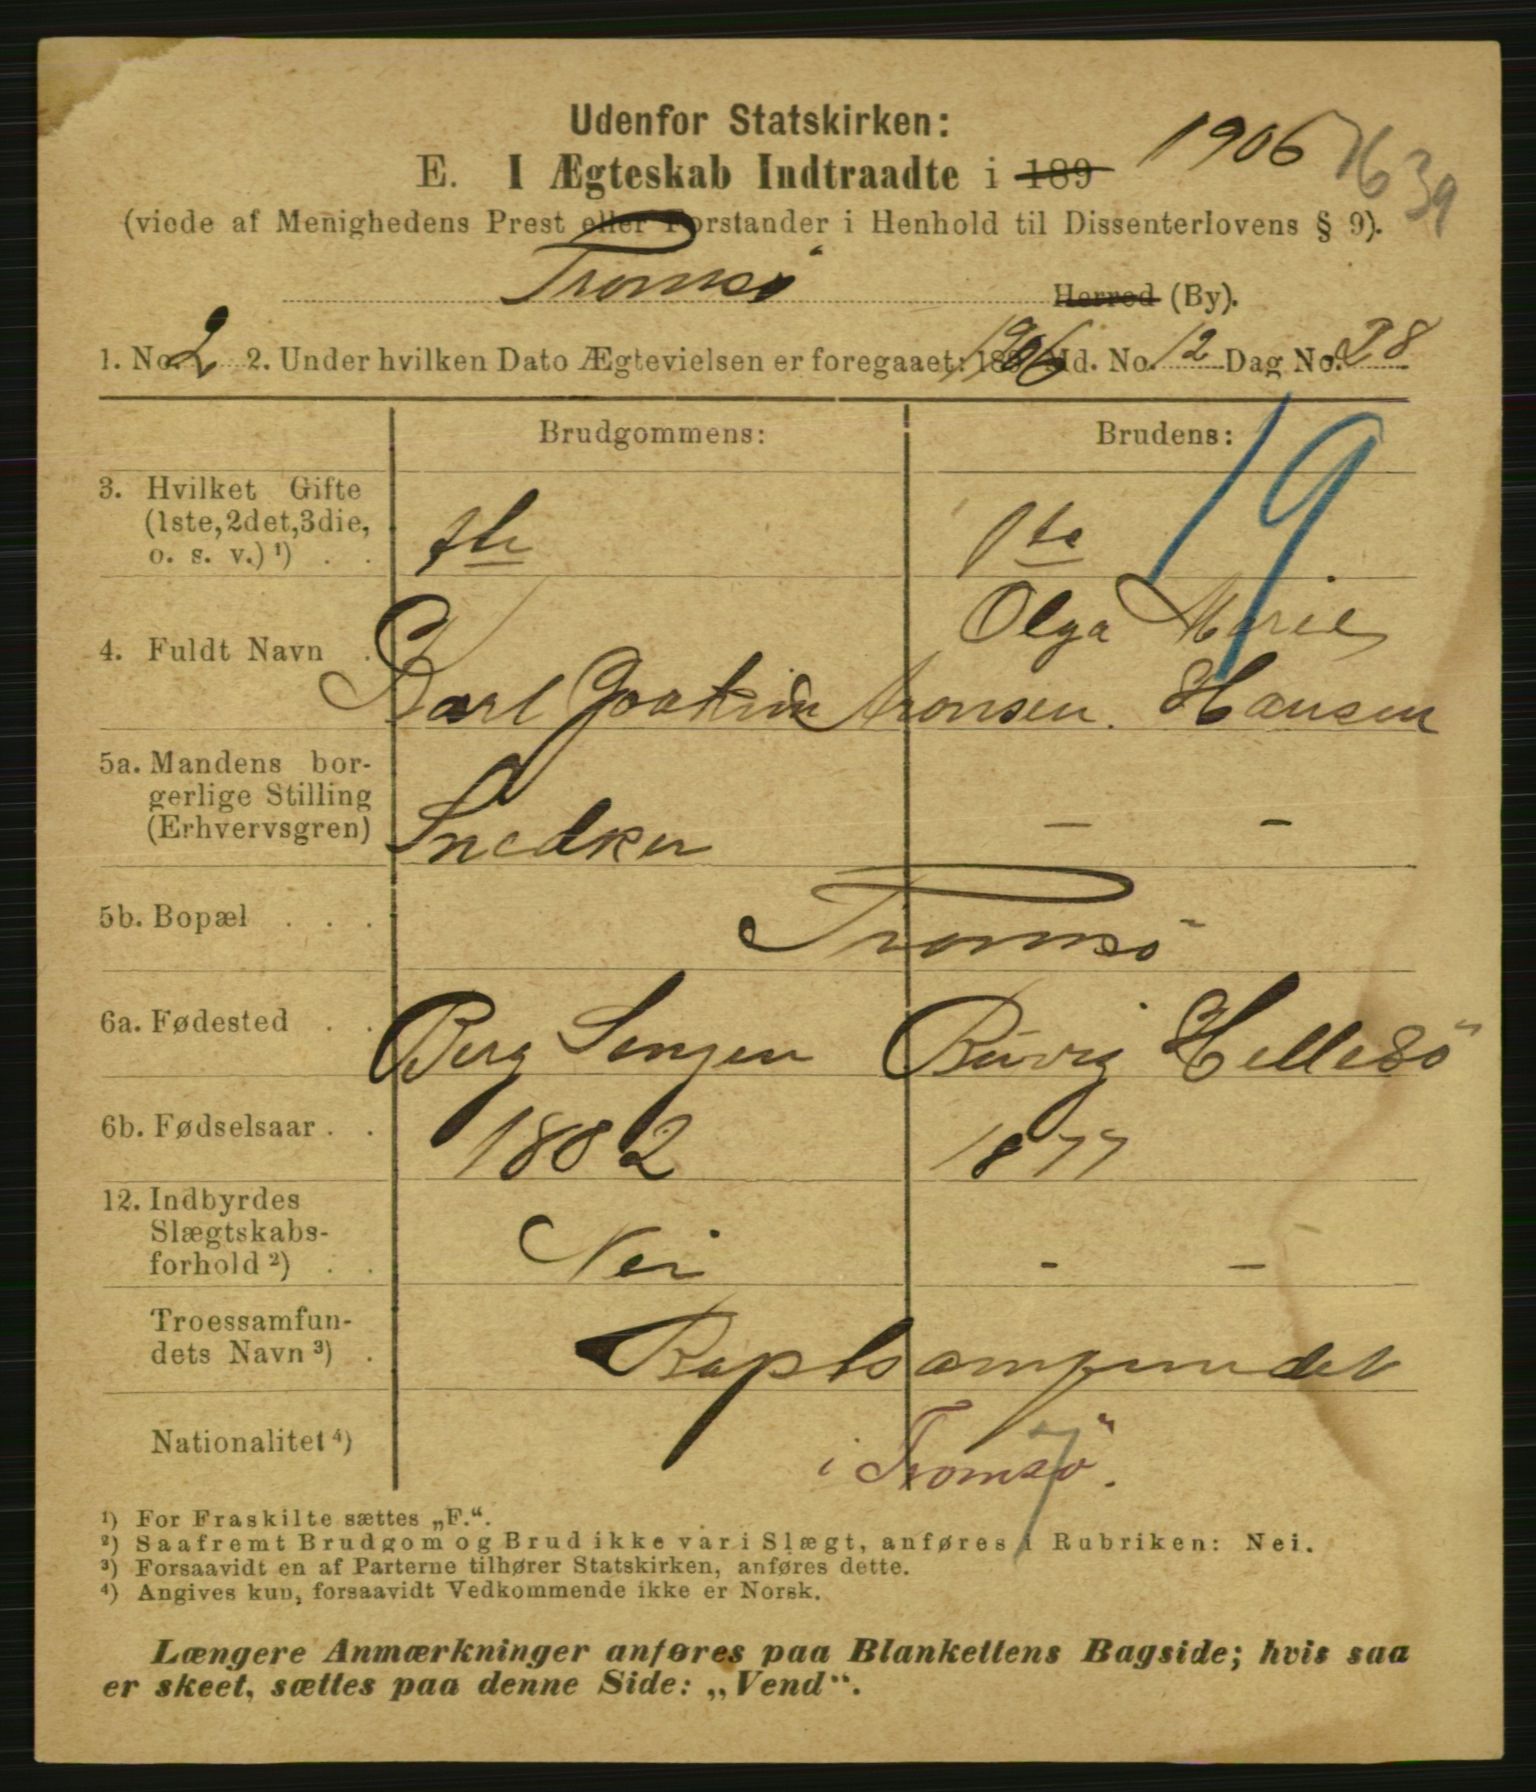 Udenfor Statskirken:
E. I Ægteskab Indtraadte i 189 1906 7639
(viede af Menighedens Prest eller Forstander i Henhold til Dissenterlovens § 9).
Tromsö Herred (By).
1. No. 2 2. Under hvilken Dato Ægtevielsen er foregaaet: 1906 Md. No. 12 Dag No. 28
Brudgommens: Brudens:
19
3. Hvilket Gifte
(1ste, 2det, 3die,
o. s. v.) ¹) . . 1ste 1ste
Olga Marie
4. Fuldt Navn . Karl Joakim Aronsen. Hansen
5a. Mandens bor-
gerlige Stilling
(Erhvervsgren) Snedker — —
5b. Bopæl . . . Tromsö
6a. Fødested . . Berg Senjen Hellesö
6b. Fødselsaar . . 1882 1877
12. Indbyrdes
Slægtskabs-
forhold ²) . . Nei - —
Troessamfun-
dets Navn ³) . Baptsamfundet
Nationalitet ⁴) i Tromsö.
7
¹) For Fraskilte sættes „F.“.
²) Saafremt Brudgom og Brud ikke var i Slægt, anføres i Rubriken: Nei.
³) Forsaavidt en af Parterne tilhører Statskirken, anføres dette.
⁴) Angives kun, forsaavidt Vedkommende ikke er Norsk.
Længere Anmærkninger anføres paa Blankettens Bagside; hvis saa
er skeet, sættes paa denne Side: „Vend“.